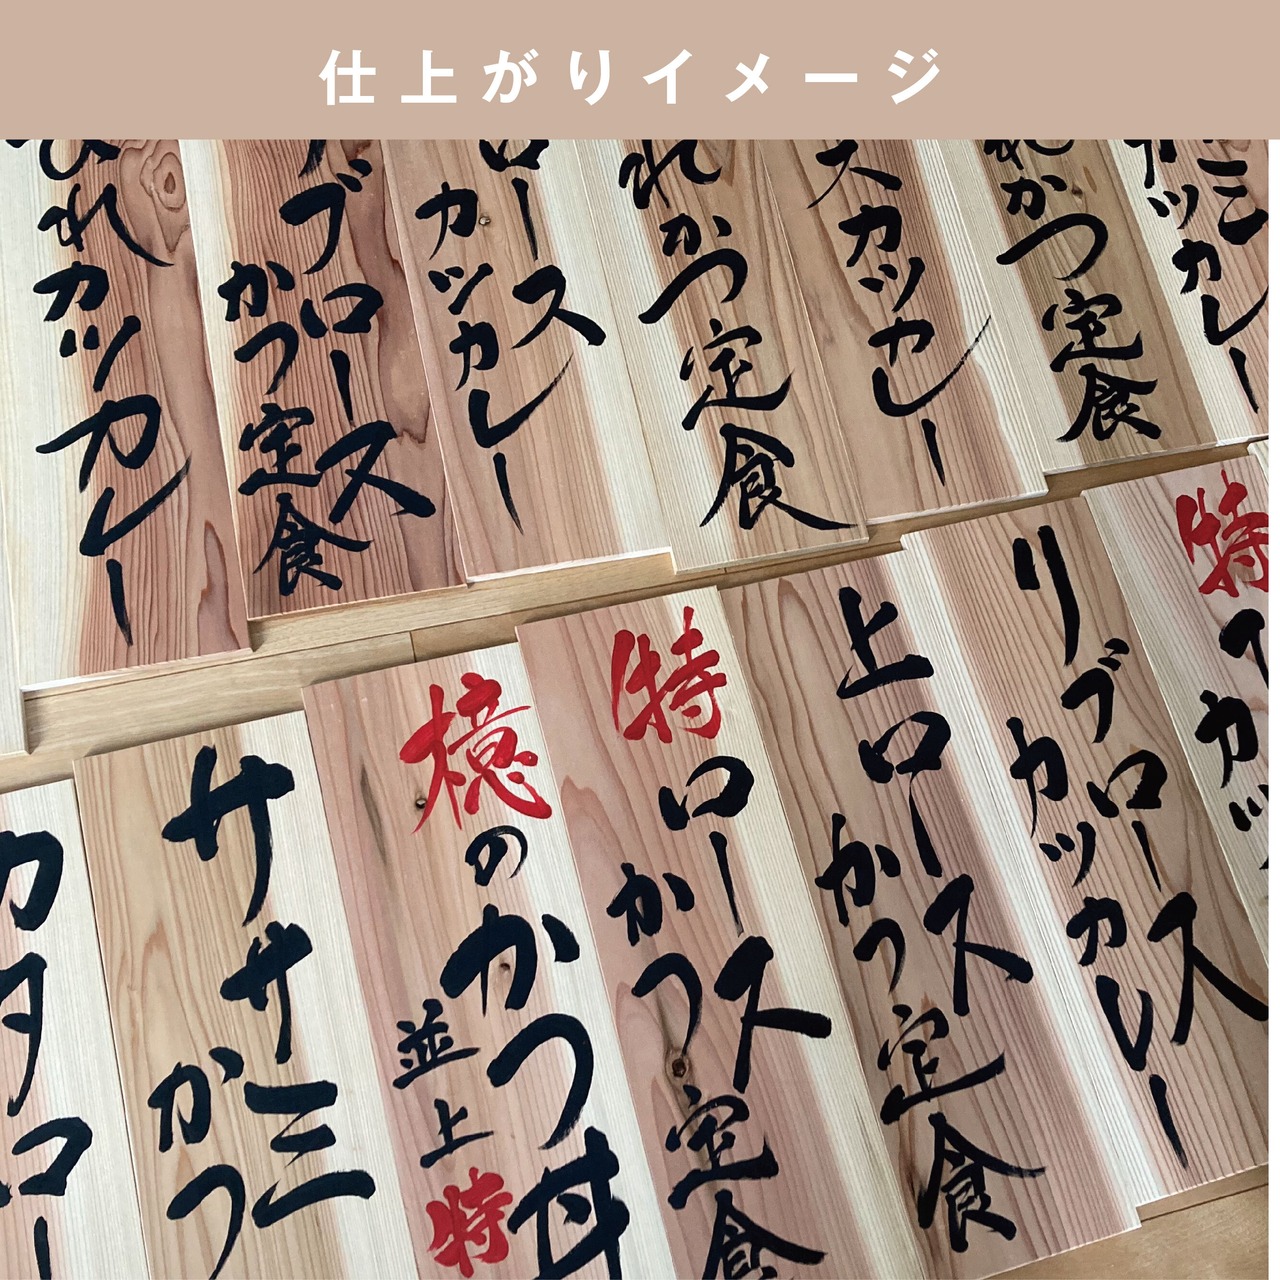 仕上がりイメージ
ひれ
カツカレー
リブロース
かつ定食
ロース
カツカレー
れかつ定食
カツカレー
れかつ定食
カツカレー
特
カツ
リブロース
カツカレー
上ロース
かつ定食
特ロース
かつ定食
檍のかつ丼
並上特
ササミ
かつ
カタロー